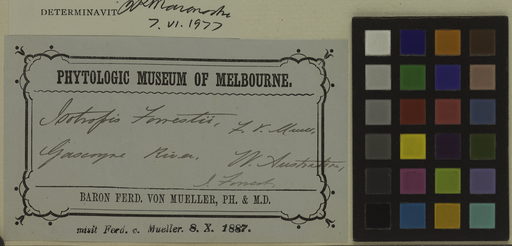 DETERMINAVIT
7. VI. 1977
PHYTOLOGIC MUSEUM OF MELBOURNE.
Isotropis Forrestii, F. v. Muell.
Gascoyne River. W. Australia,
J. Forrest
BARON FERD. VON MUELLER, PH. & M.D.
misit Ferd. c. Mueller. 8. X. 1887.